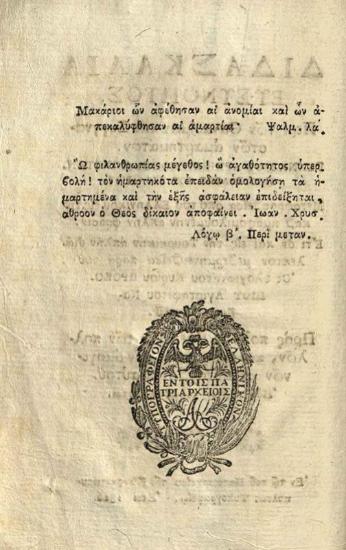 Μακάριοι ὧν ἀφέθησαν αἱ ἀνομίαι καὶ ὧν ἀ-
πεκαλύφθησαν αἱ ἁμαρτίαι Ψαλμ. λα΄
Ὢ φιλανθρωπίας μέγεθος! ὢ ἀγαθότητος ὑπερ-
βολή! τὸν ἡμαρτηκότα ἐπειδὰν ὁμολογήσῃ τὰ ἡ-
μαρτημένα καὶ τὴν ἑξῆς ἀσφάλειαν ἐπιδείξηται,
ἀθρόον ὁ Θεὸς δίκαιον ἀποφαίνει. Ἰωάν. Χρυσ
Λόγῳ β΄. Περὶ μεταν.
ΤΥΠΟΓΡΑΦΕΙΟΝ ΕΛΛΗΝΙΚΟΝ
ΕΝ ΤΟΙΣ ΠΑ
ΤΡΙΑΡΧΕΙΟΙΣ